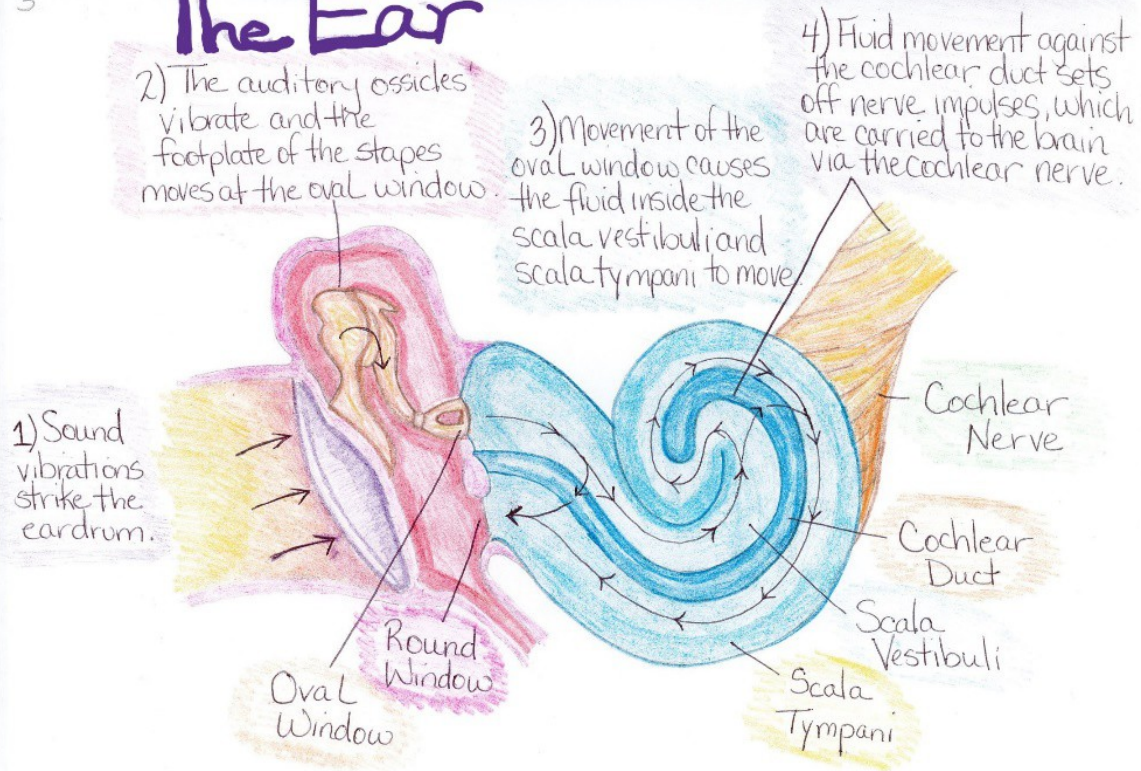 The Ear
2) The auditory ossicles
vibrate and the
footplate of the stapes
moves at the oval window.
3) Movement of the
oval window causes
the fluid inside the
scala vestibuli and
scala tympani to move.
4) Fluid movement against
the cochlear duct sets
off nerve impulses, which
are carried to the brain
via the cochlear nerve.
1) Sound
vibrations
strike the
eardrum.
Cochlear
Nerve
Cochlear
Duct
Scala
Vestibuli
Scala
Tympani
Round
Window
Oval
Window